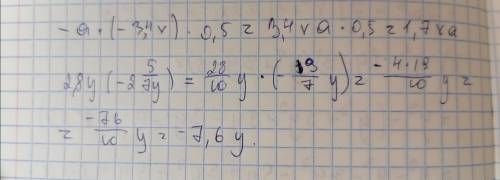 -a · (-3,4x) · 0,5 = 3,4xa · 0,5 = 1,7xa
2,8y (-2 5/7y) = 28/10 y · (-19/7 y) = -4·19/10 y =
= -76/10 y = -7,6y.